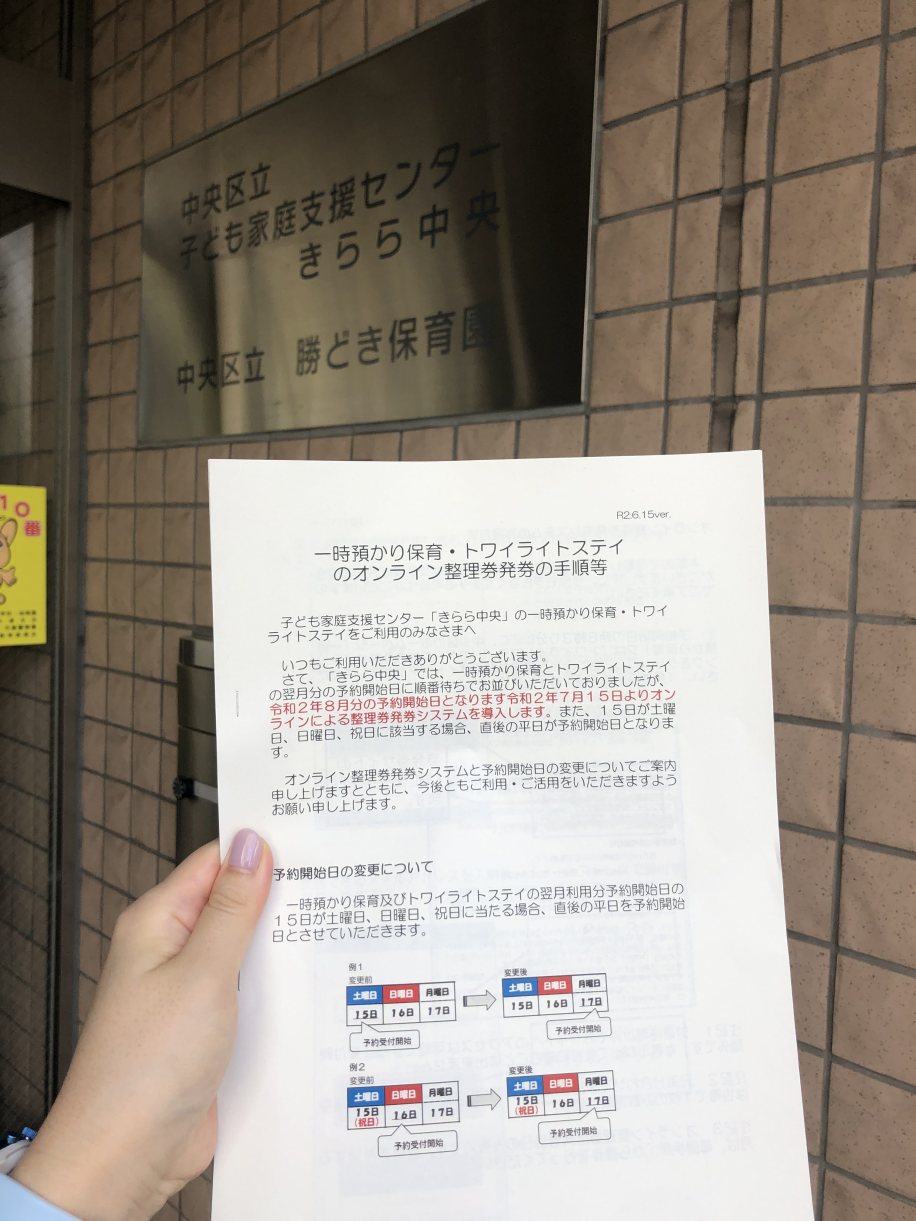 中央区立
子ども家庭支援センター
きらら中央
中央区立 勝どき保育園
10
番
R2.6.15ver.
一時預かり保育・トワイライトステイ
のオンライン整理券発券の手順等
子ども家庭支援センター「きらら中央」の一時預かり保育・トワイ
ライトステイをご利用のみなさまへ
いつもご利用いただきありがとうございます。
さて、「きらら中央」では、一時預かり保育とトワイライトステイ
の翌月分の予約開始日に順番待ちでお並びいただいておりましたが、
令和2年8月分の予約開始日となります令和2年7月15日よりオン
ラインによる整理券発券システムを導入します。また、15日が土曜
日、日曜日、祝日に該当する場合、直後の平日が予約開始日となりま
す。
オンライン整理券発券システムと予約開始日の変更についてご案内
申し上げますとともに、今後ともご利用・ご活用をいただきますよう
お願い申し上げます。
予約開始日の変更について
一時預かり保育及びトワイライトステイの翌月利用分予約開始日の
15日が土曜日、日曜日、祝日に当たる場合、直後の平日を予約開始
日とさせていただきます。
例1
変更前 変更後
土曜日 日曜日 月曜日 土曜日 日曜日 月曜日
15日 16日 17日 15日 16日 17日
予約受付開始 予約受付開始
例2
変更前 変更後
土曜日 日曜日 月曜日 土曜日 日曜日 月曜日
15日 16日 17日 15日 16日 17日
(祝日) (祝日)
予約受付開始 予約受付開始